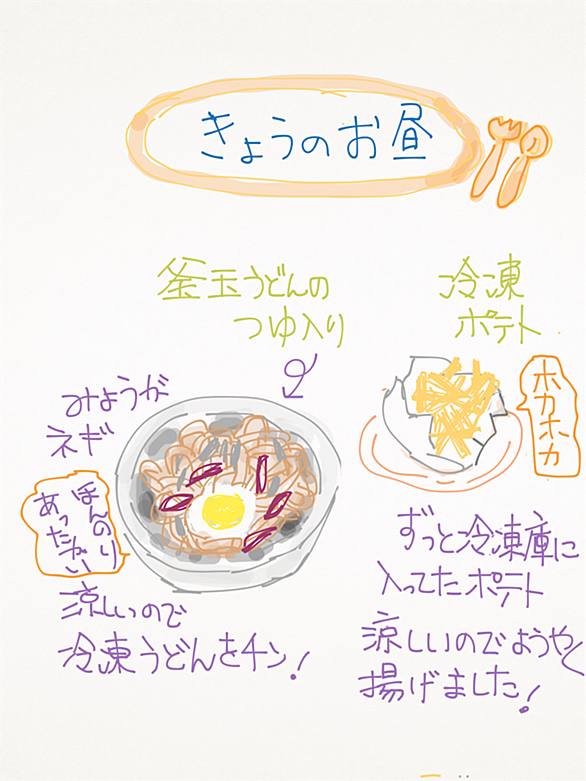 きょうのお昼
釜玉うどんの
つゆ入り
冷凍
ポテト
みょうが
ネギ
ホカホカ
ほんのり
あったかい
涼しいので
冷凍うどんをチン!
ずっと冷凍庫に
入ってたポテト
涼しいのでようやく
揚げました!